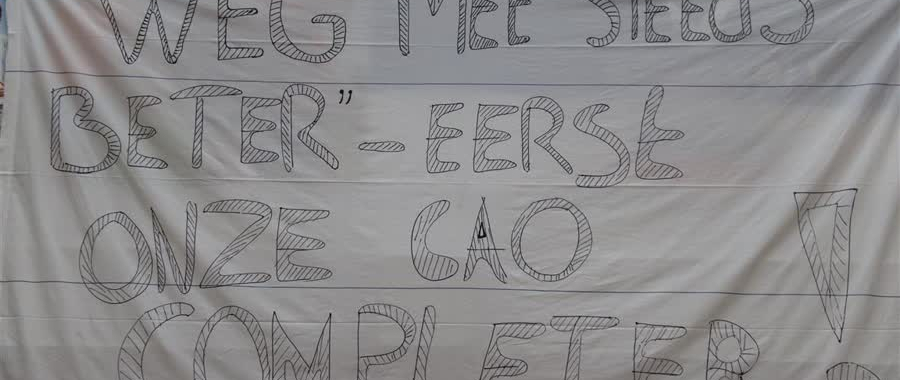 WEG MEE STEEDS
BETER" - EERSt
ONZE CAO !
COMPLETER